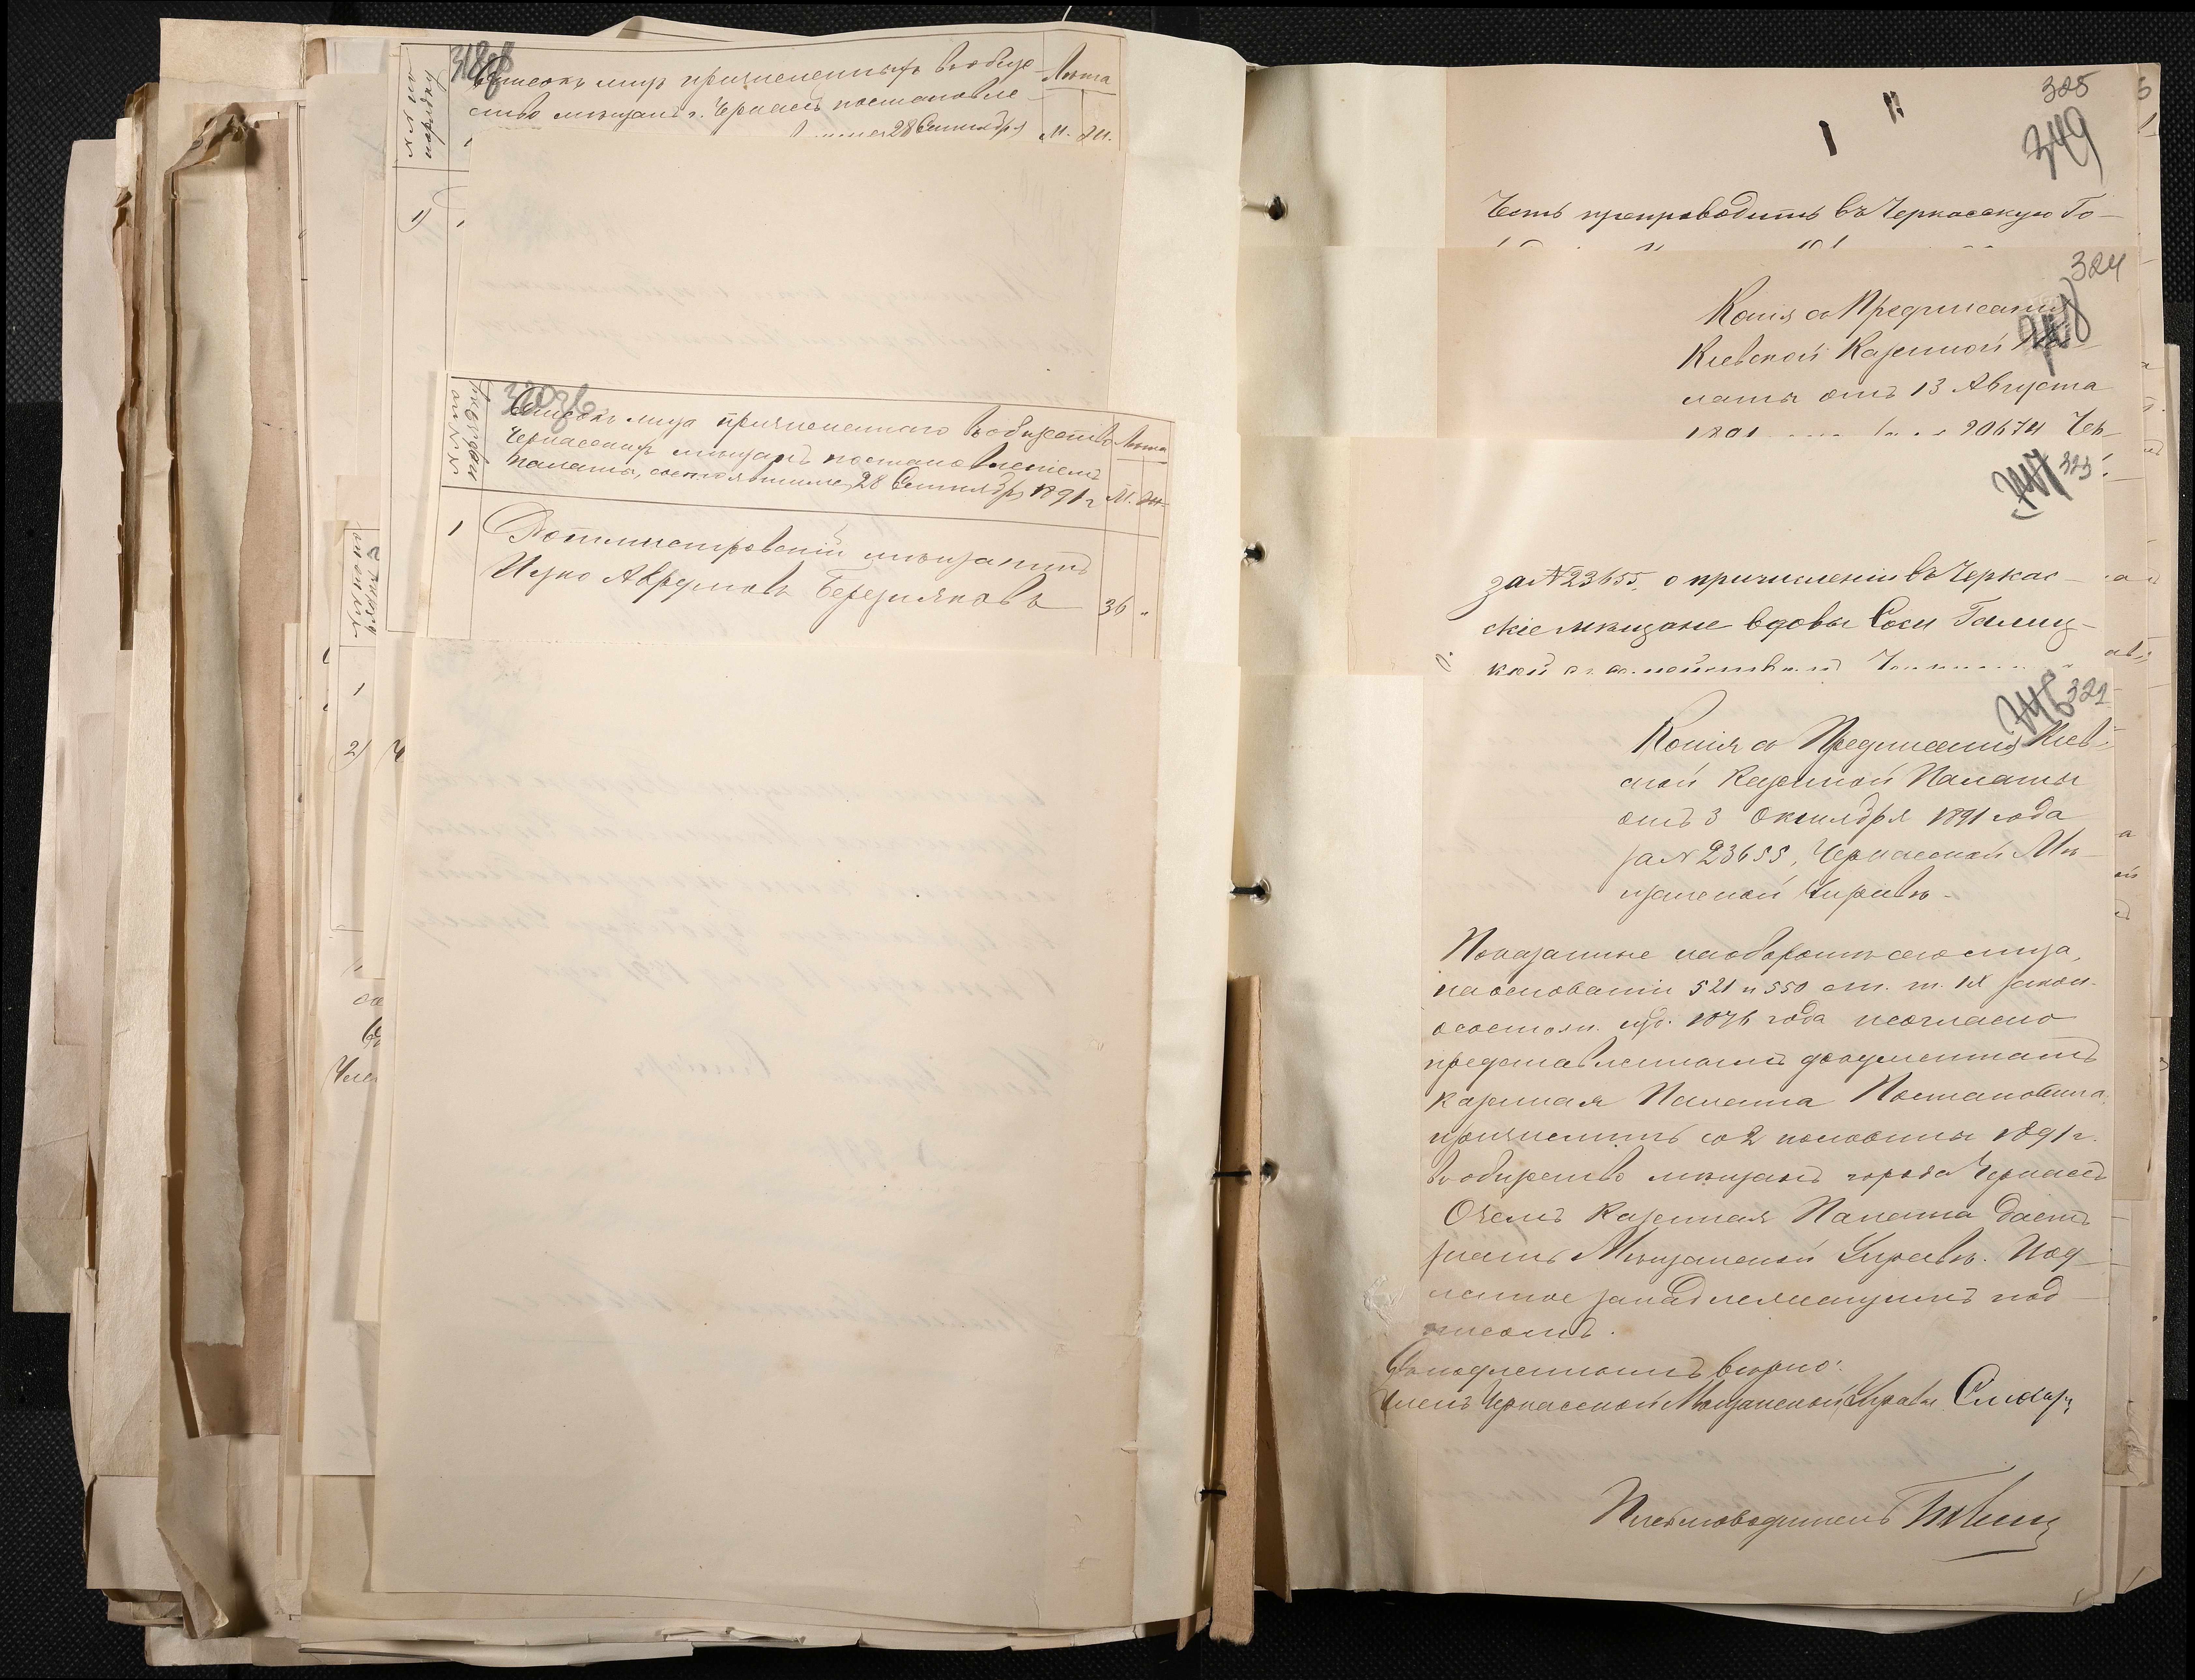 318об
№№ по порядку
Списокъ лицъ причисленныхъ въ обще-
ство мѣщанъ г. Черкасъ постановле-
28 Сентября
Лѣта
М. Ж.
1)
320об
№№ по порядку
Списокъ лица причисленнаго въ общество
Черкасскихъ мѣщанъ постановленіемъ
Палаты, состоявшимся 28 Сентября 1891 г
Лѣта
М. Ж.
1
Ротмистровскій мѣщанинъ
Ицко Аврумовъ Березняковъ
36 "
1
2)
325
349
Честь препроводить въ Черкасскую Го-
324
348
Копія съ Предписанія
Кіевской Казенной Па-
латы отъ 13 Августа
1891 20674 Чер-
347 323
за № 23655, о причисленіи въ Черкас-
скіе мѣщане вдовы Соси Галиц-
кой съ семействомъ
346 321
Копія съ Предписанія Кіев-
ской Казенной Палаты
отъ 3 Октября 1891 года
за № 23655, Черкасской Мѣ-
щанской Управѣ.
Показанные на оборотѣ сего лица,
на основаніи 521 и 550 ст. т. IX закон.
о состоян. изд. 1876 года и согласно
представленнымъ документамъ
Казенная Палата Постановила:
причислить со 2 половины 1891 г.
въ общество мѣщанъ города Черкасъ
О чемъ Казенная Палата даетъ
знать Мѣщанской Управѣ. Под-
линное за надлежащимъ под-
писомъ.
Съ подлиннымъ вѣрно:
Членъ Черкасской Мѣщанской Управы
Письмоводитель